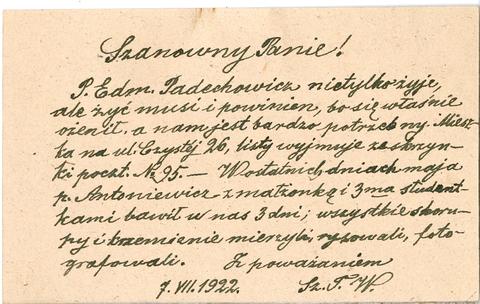 Szanowny Panie!
P. Edm. Padechowicz nietylko żyje,
ale żyć musi i powinien, bo się właśnie
ożenił, a nam jest bardzo potrzebny. Miesz-
ka na ul. Czystéj 26, listy wyjmuje ze skrzyn-
ki poczt. № 95. — W ostatnich dniach maja
p. Antoniewicz z małżonką i 3ma student-
kami bawił u nas 3 dni; wszystkie skoru-
py i krzemienie mierzyli, rysowali, foto-
grafowali. Z poważaniem
7. VII. 1922. Sz. T. W.